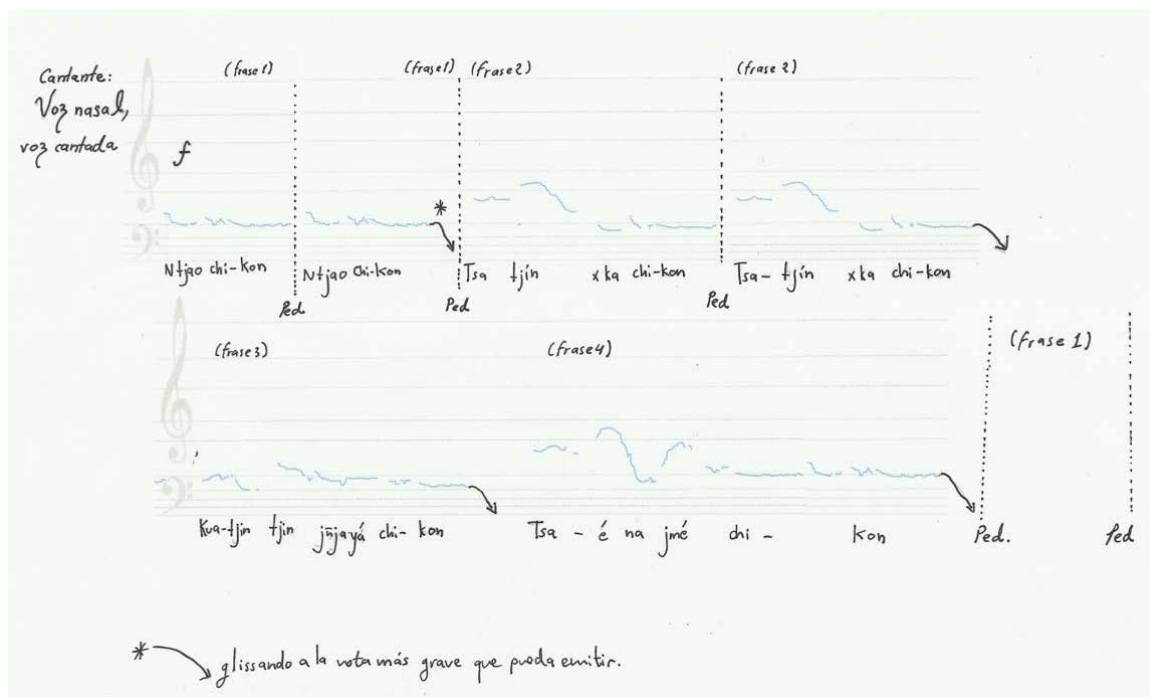 Cantante:
Voz nasal,
voz cantada
(frase 1) (frase 1) (frase 2) (frase 2)
f
*
Ntjao chi-kon Ntjao chi-kon Tsa tjín xka chi-kon Tsa-tjín xka chi-kon
Ped. Ped Ped
(frase 3) (frase 4) (frase 1)
Kua-tjin tjin jñjayá chi-kon Tsa - é na jmé chi - kon Ped. Ped
* glissando a la nota más grave que pueda emitir.